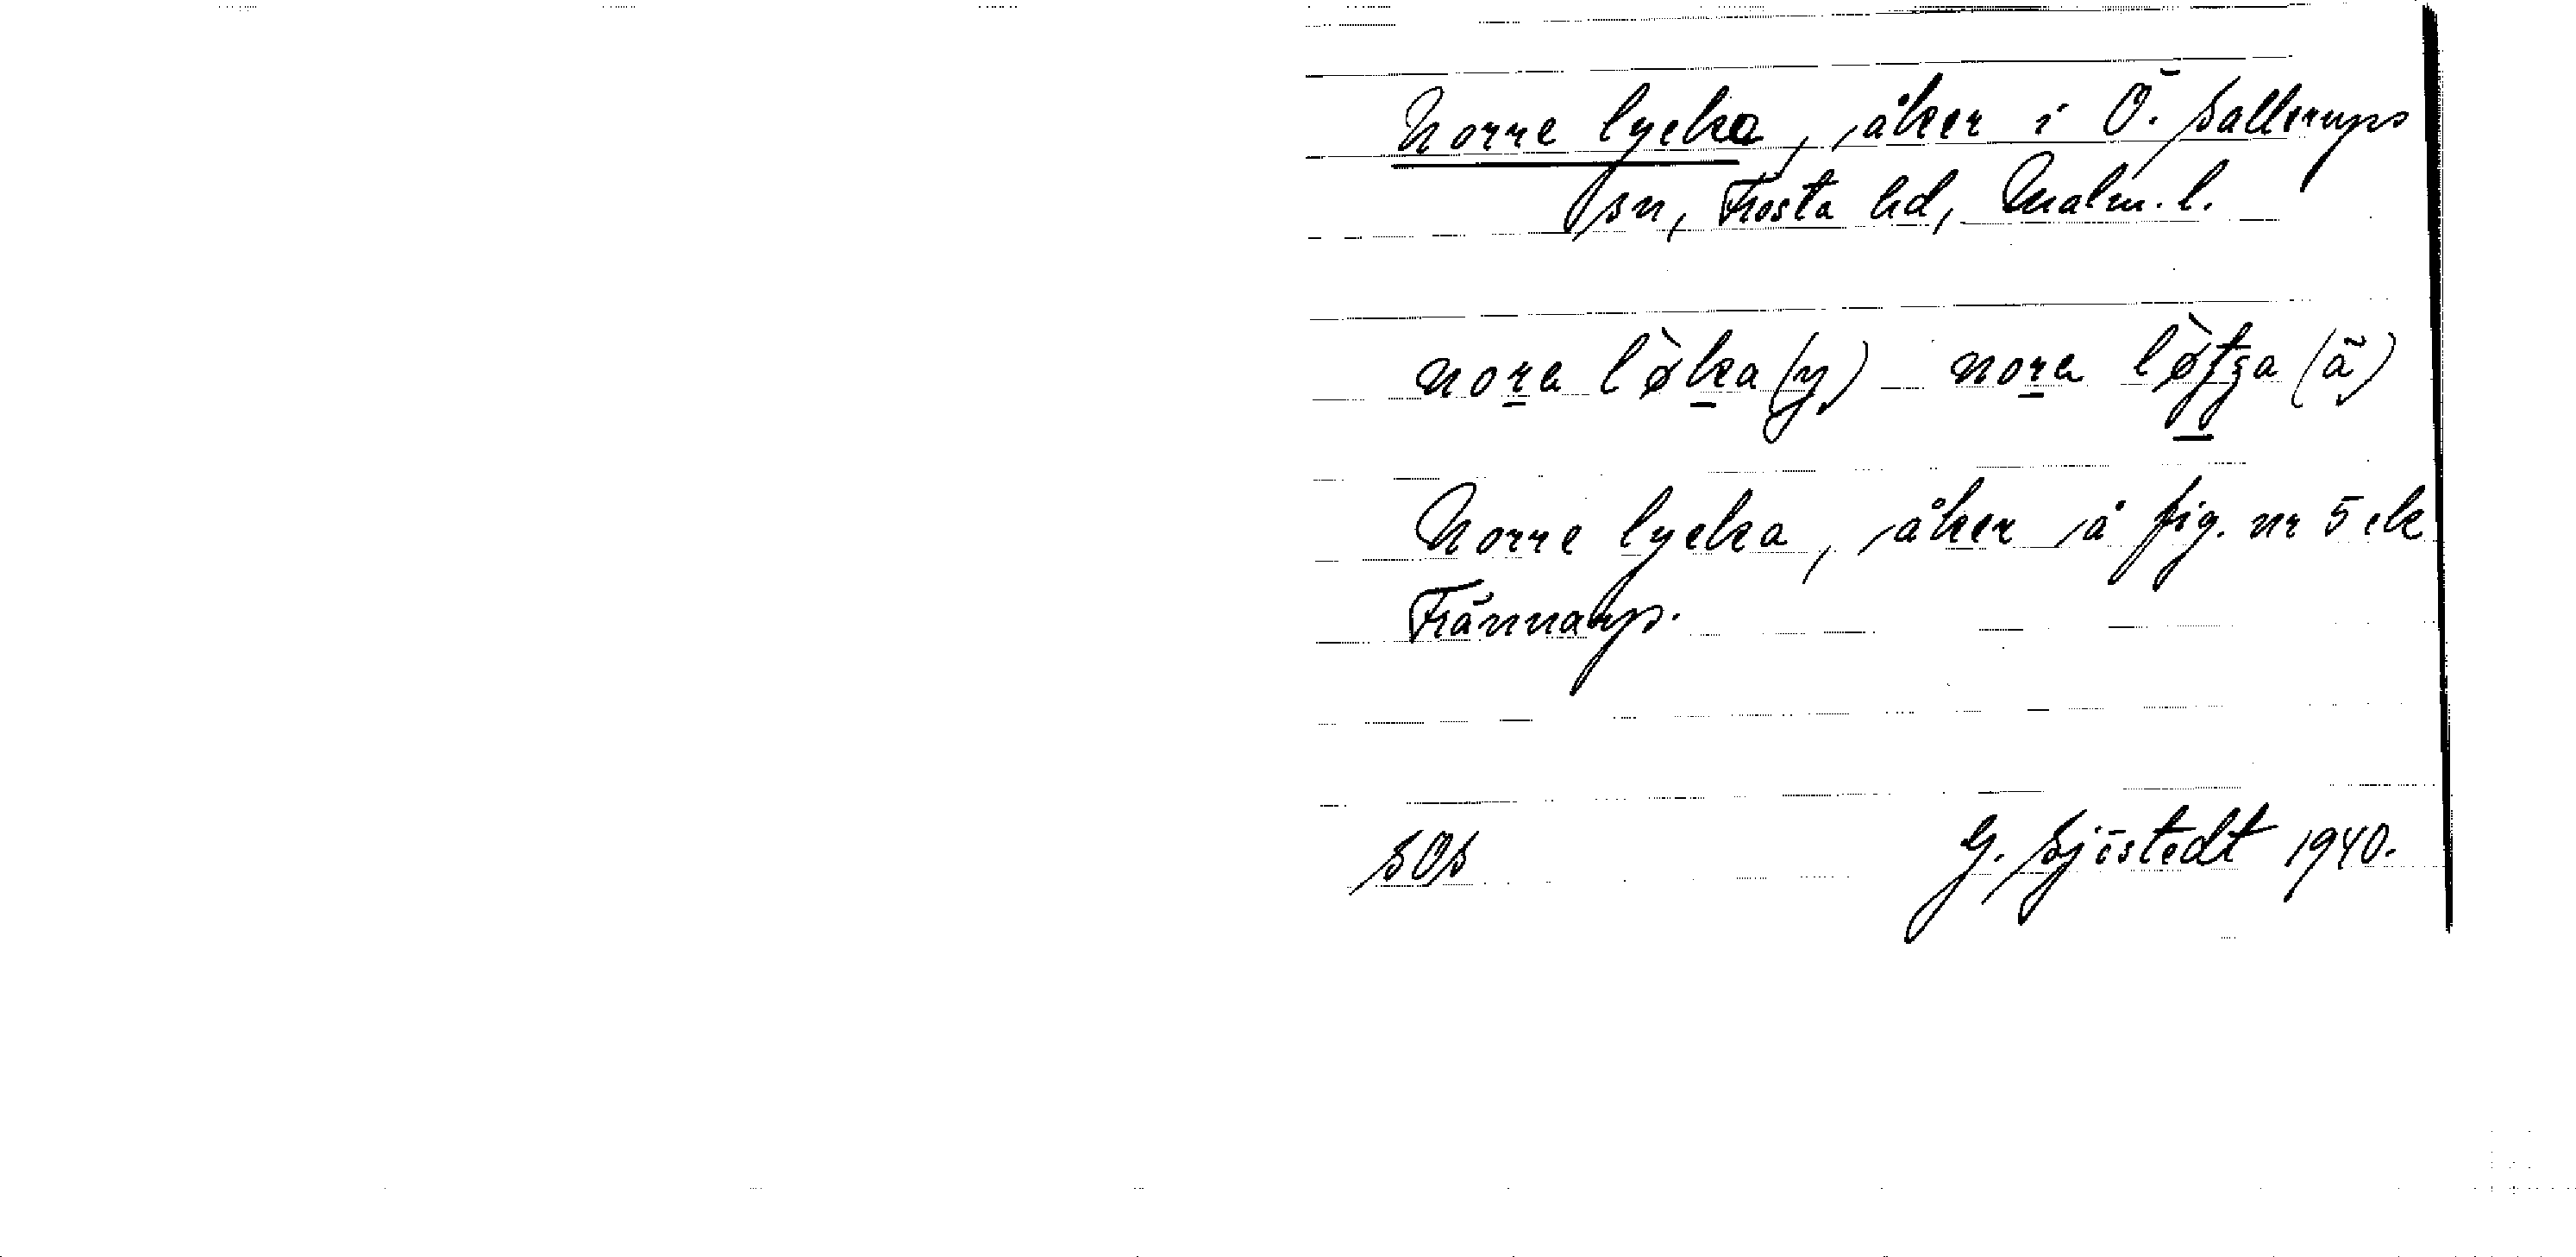 Norre lycka, åker i Ö. Sallerups
sn, Frosta hd, Malm. l.
nora lø̀ka (y) nora lø̀tʒa (ã)
Norre lycka, åker å fig. nr 5 ek
Frännarp.
SOS G. Sjöstedt 1940.